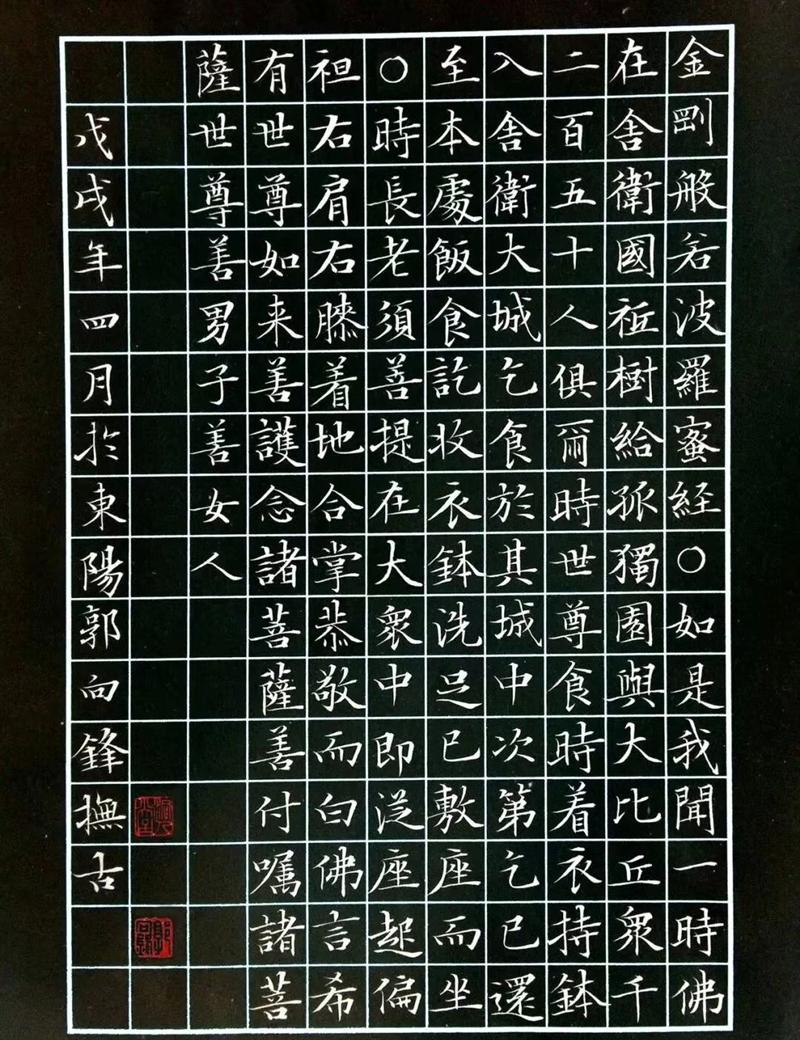 金剛般若波羅蜜経○如是我聞一時佛
在舍衛國祗樹給孤獨園與大比丘衆千
二百五十人俱爾時世尊食時着衣持鉢
入舍衛大城乞食於其城中次第乞已還
至本處飯食訖收衣鉢洗足已敷座而坐
○時長老須菩提在大衆中即従座起偏
袒右肩右膝着地合掌恭敬而白佛言希
有世尊如来善護念諸菩薩善付囑諸菩
薩世尊善男子善女人
戊戌年四月於東陽郭向鋒撫古